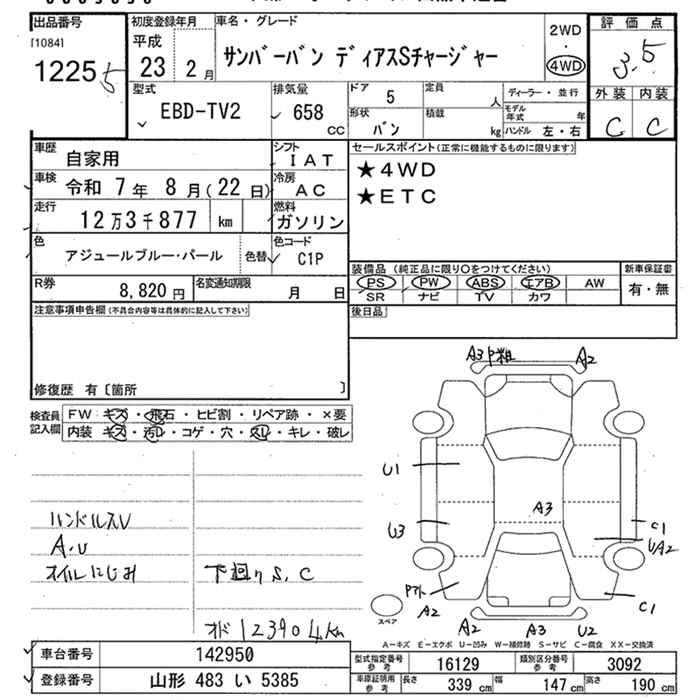 出品番号 初度登録年月 車名・グレード 2WD 評価点
[1084] 平成 ・
1225 5 23年 2月 サンバーバン ディアスSチャージャー 4WD 3.5
型式 排気量 ドア 5 定員 人 ディーラー・並行 外装 内装
EBD-TV2 658 CC 形状 バン 積載 kg モデル年式 年 C C
ハンドル 左・右
車歴 自家用 シフト IAT セールスポイント(正常に機能するものに限ります)
車検 令和 7年 8月(22日) 冷房 AC ★4WD
走行 12万3千877 km 燃料 ガソリン ★ETC
色 アジュールブルー・パール 色替 色コード C1P
装備品 (純正品に限り○をつけてください) 新車保証書
R券 8,820円 名変通知期限 月 日 PS PW ABS エアB AW 有・無
SR ナビ TV カワ
注意事項申告欄(不具合内容等は具体的に記入して下さい) 後日品
修復歴 有〔箇所 〕
検査員記入欄 FW キズ・飛石・ヒビ割・リペア跡・×要
内装 キズ・汚レ・コゲ・穴・スレ・キレ・破レ
A3 A2
U1
ハンドルスレ U3 A3 C1
A.U UA2
オイルにじみ 下回りS、C
A2 C1
スペア
オド123904km A2 A3 U2
A=キズ E=エクボ U=凹み W=補修跡 S=サビ C=腐食 XX=交換済
車台番号 142950 型式指定番号 参考 16129 類別区分番号 参考 3092
登録番号 山形 483 い 5385 車庫証明用 参考 長さ 339 cm 幅 147 cm 高さ 190 cm